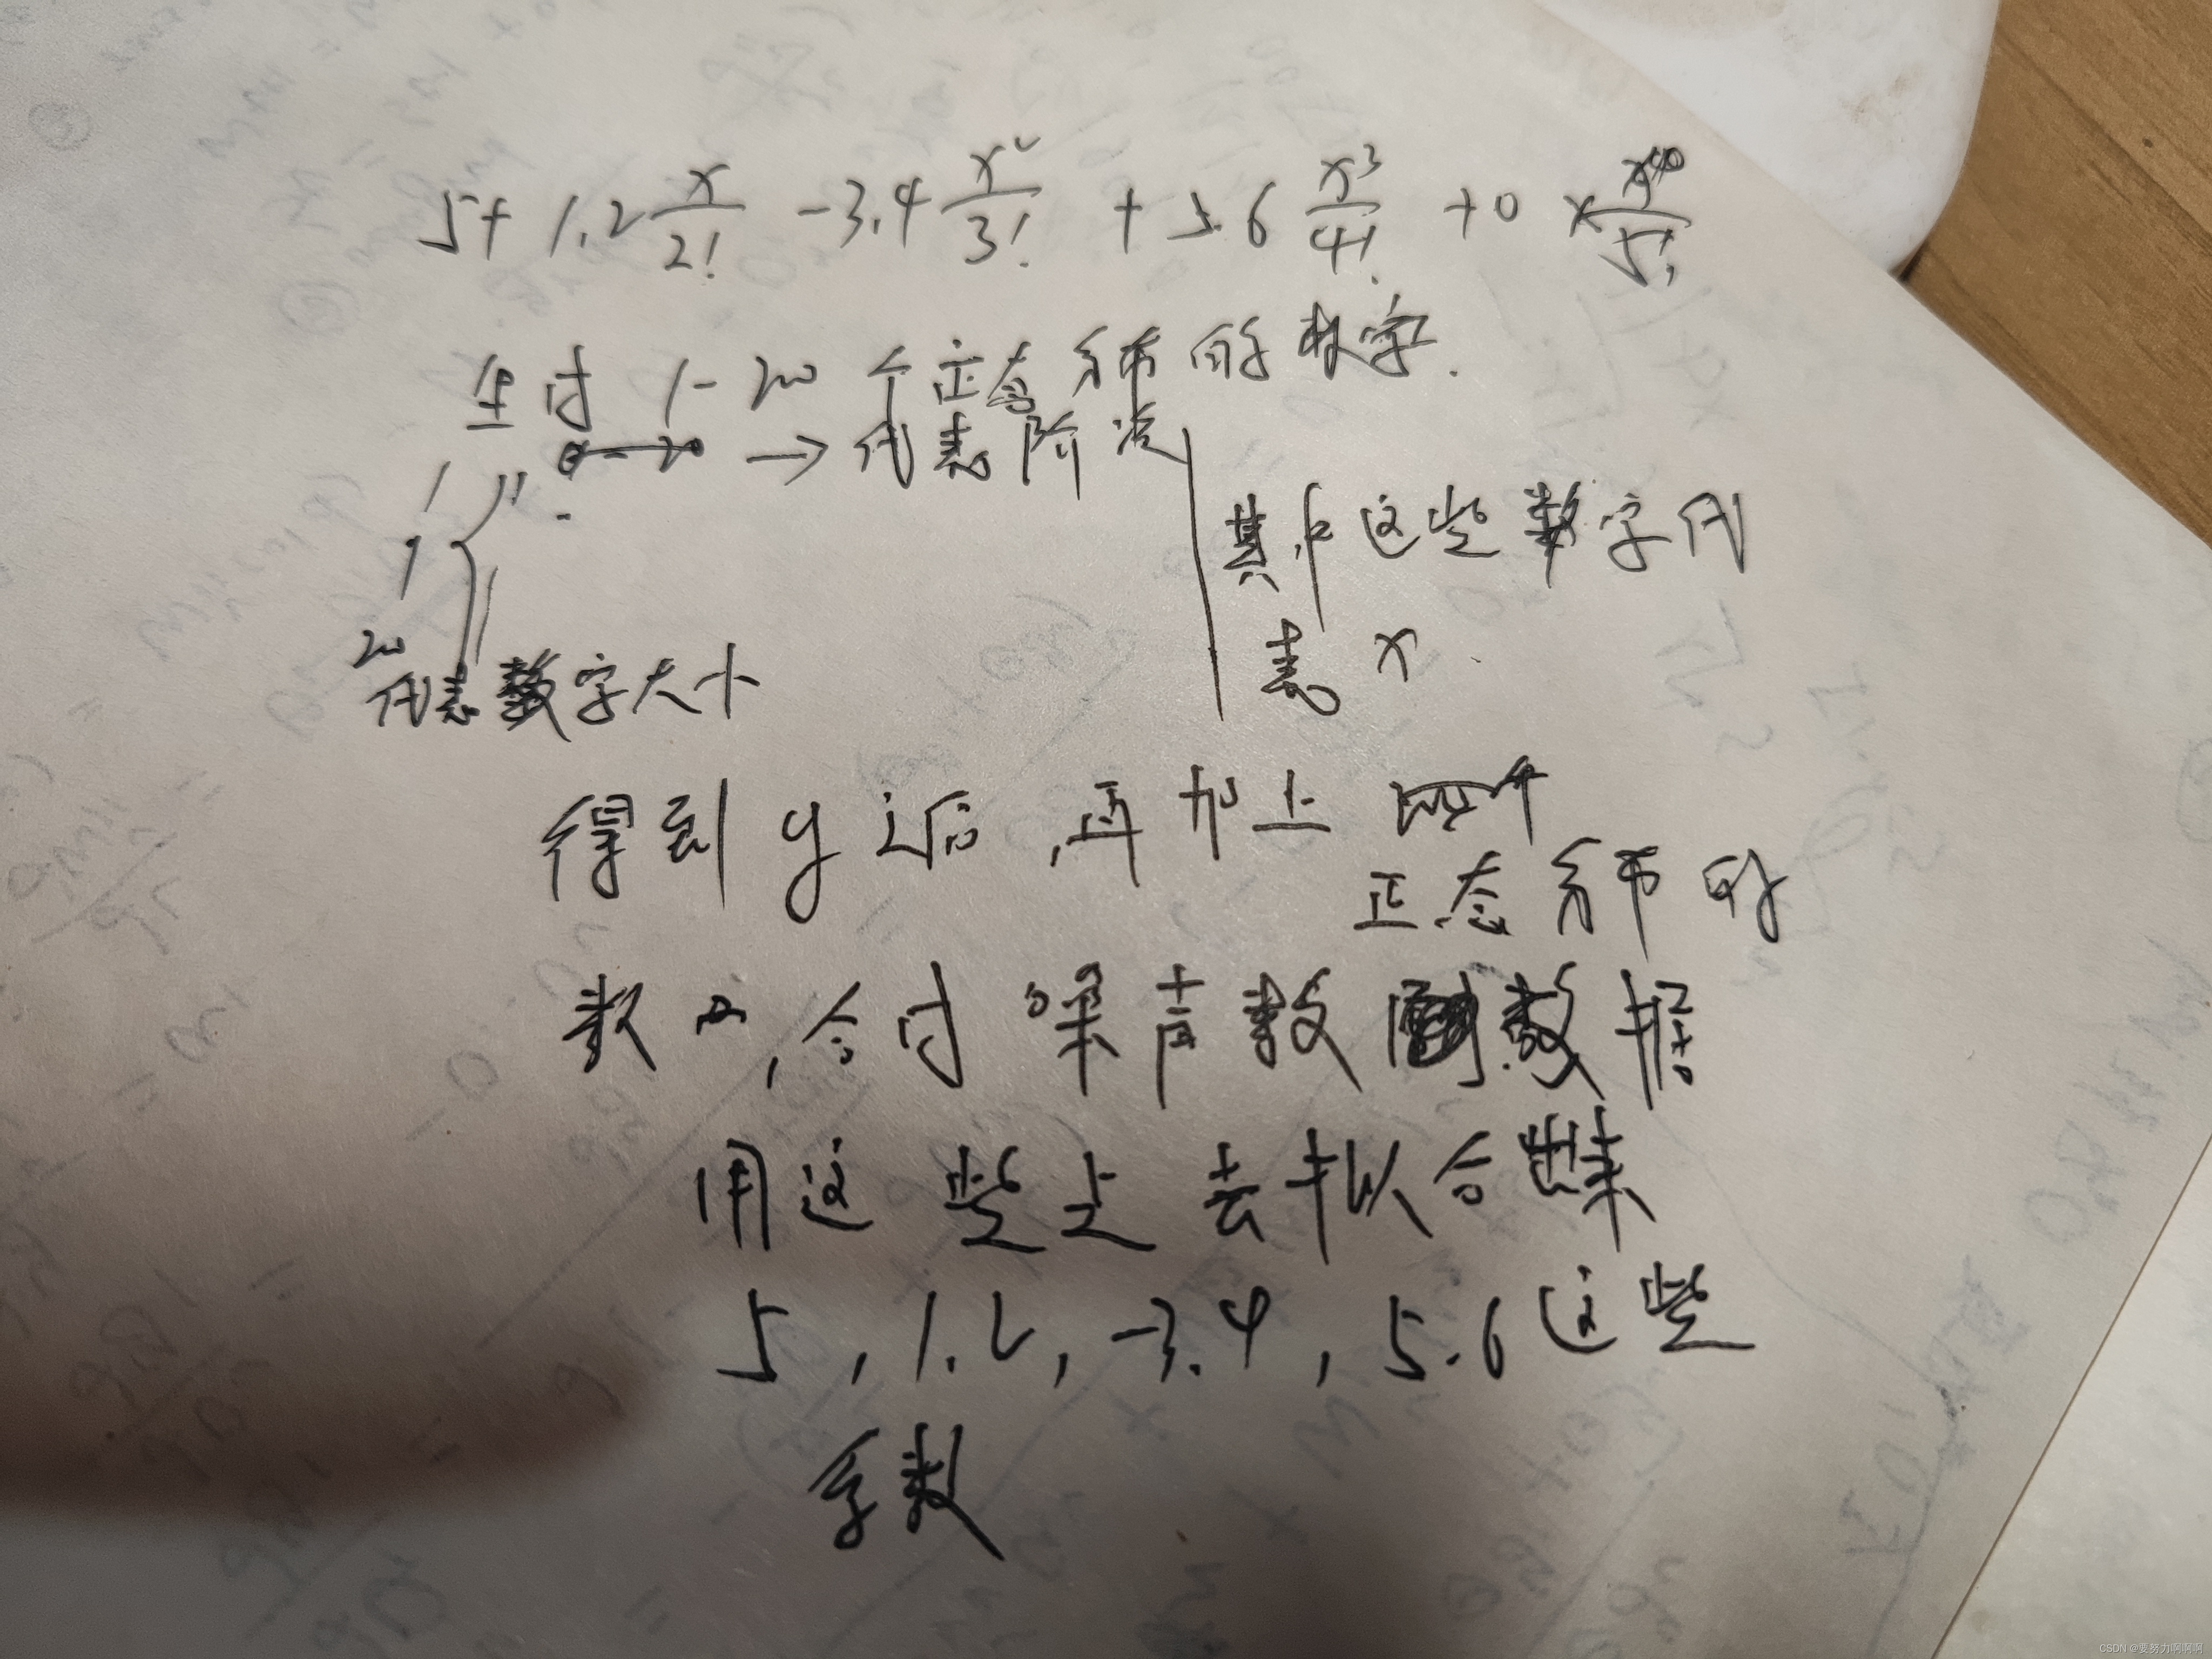 5+ 1.2 x/2! -3.4 x²/3! + 5.6 x³/4! +0 × x/5!
生成 1- 200 个正态分布的数字.
0—20 → 代表阶次
1
1
200
代表数字大小
其中这些数字代
表 x.
得到 y 过后,再加上
正态分布的
数字,合成噪声数 数据
用这些去拟合出来
5, 1.2, -3.4, 5.6 这些
系数
CSDN @要努力啊啊啊